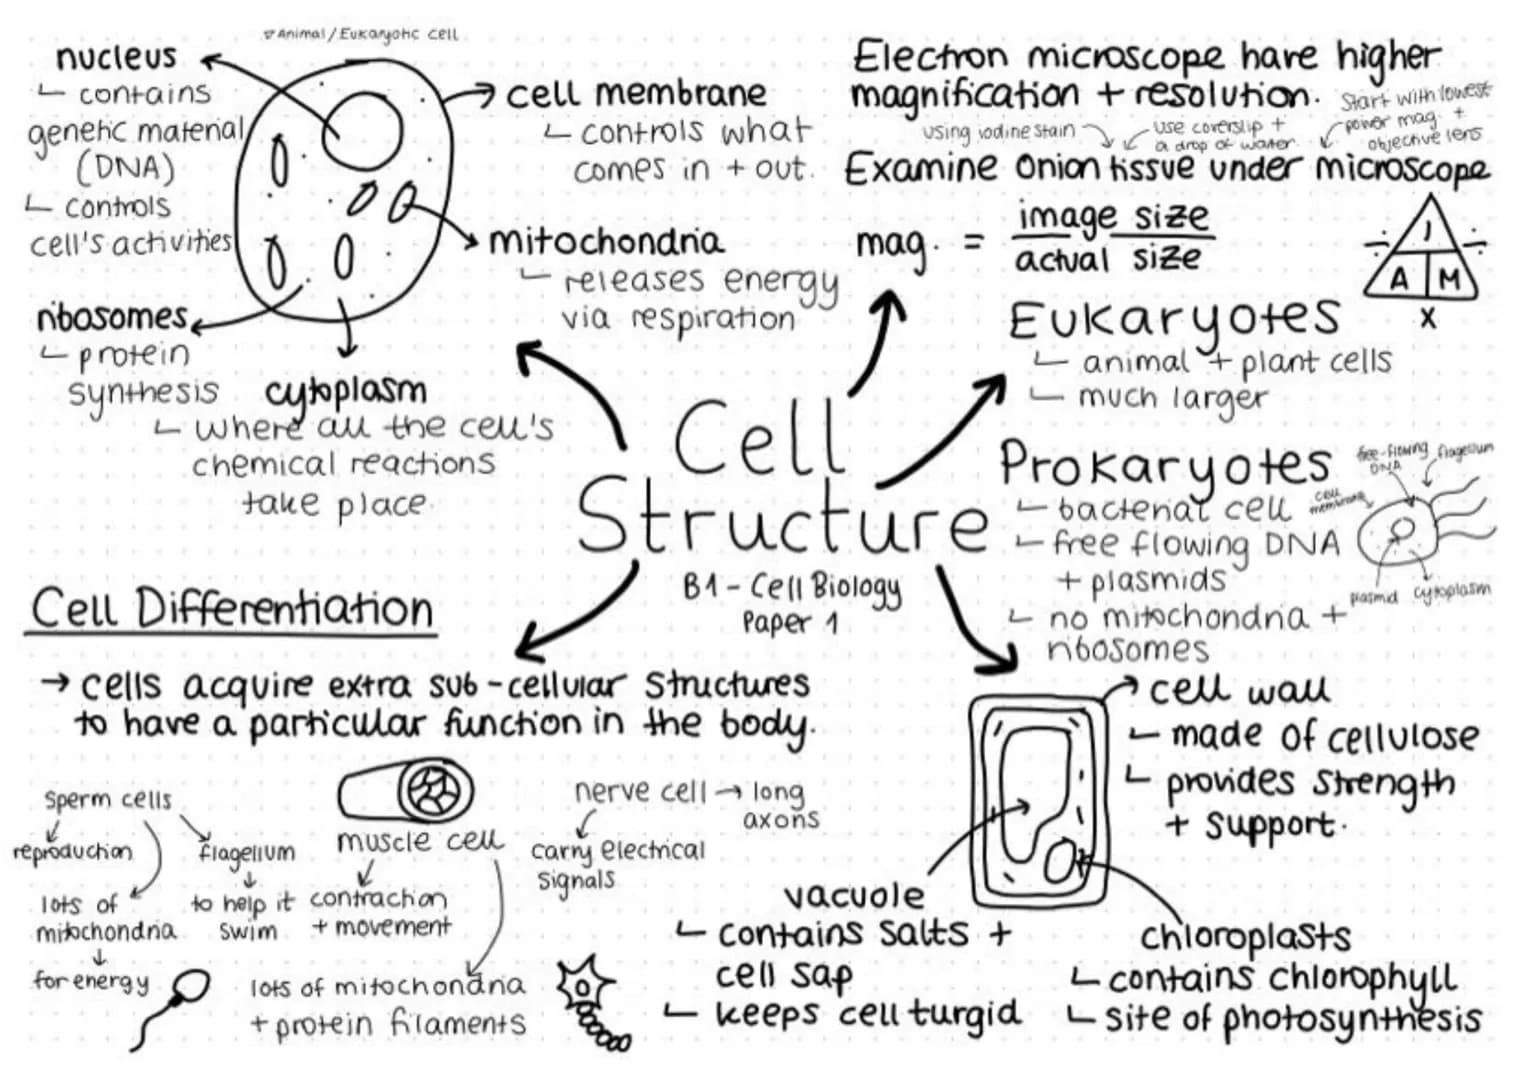 ▽ Animal / Eukaryotic cell
nucleus
∟ contains
genetic material
(DNA)
∟ controls
cell's activities
ribosomes
∟ protein
synthesis
cytoplasm
∟ where all the cell's
chemical reactions
take place.
cell membrane
∟ controls what
comes in + out.
mitochondria
∟ releases energy
via respiration
Electron microscope have higher
magnification + resolution.
using iodine stain
use coverslip +
a drop of water.
Start with lowest
power mag. +
objective lens
Examine Onion tissue under microscope
mag. = image size
actual size
÷ I ÷
A M
x
Eukaryotes
∟ animal + plant cells
∟ much larger
Prokaryotes
∟ bacterial cell
∟ free flowing DNA
+ plasmids
∟ no mitochondria +
ribosomes
free-flowing
DNA
flagellum
cell
membrane
plasmid
cytoplasm
Cell
Structure
B1 - Cell Biology
Paper 1
Cell Differentiation
→ cells acquire extra sub-cellular structures
to have a particular function in the body.
sperm cells
reproduction
flagellum
lots of
mitochondria
to help it
swim
for energy
muscle cell
contraction
+ movement
lots of mitochondria
+ protein filaments
nerve cell → long
axons
carry electrical
signals
cell wall
∟ made of cellulose
∟ provides strength
+ support.
vacuole
∟ contains salts +
cell sap
∟ keeps cell turgid
chloroplasts
∟ contains chlorophyll
∟ site of photosynthesis